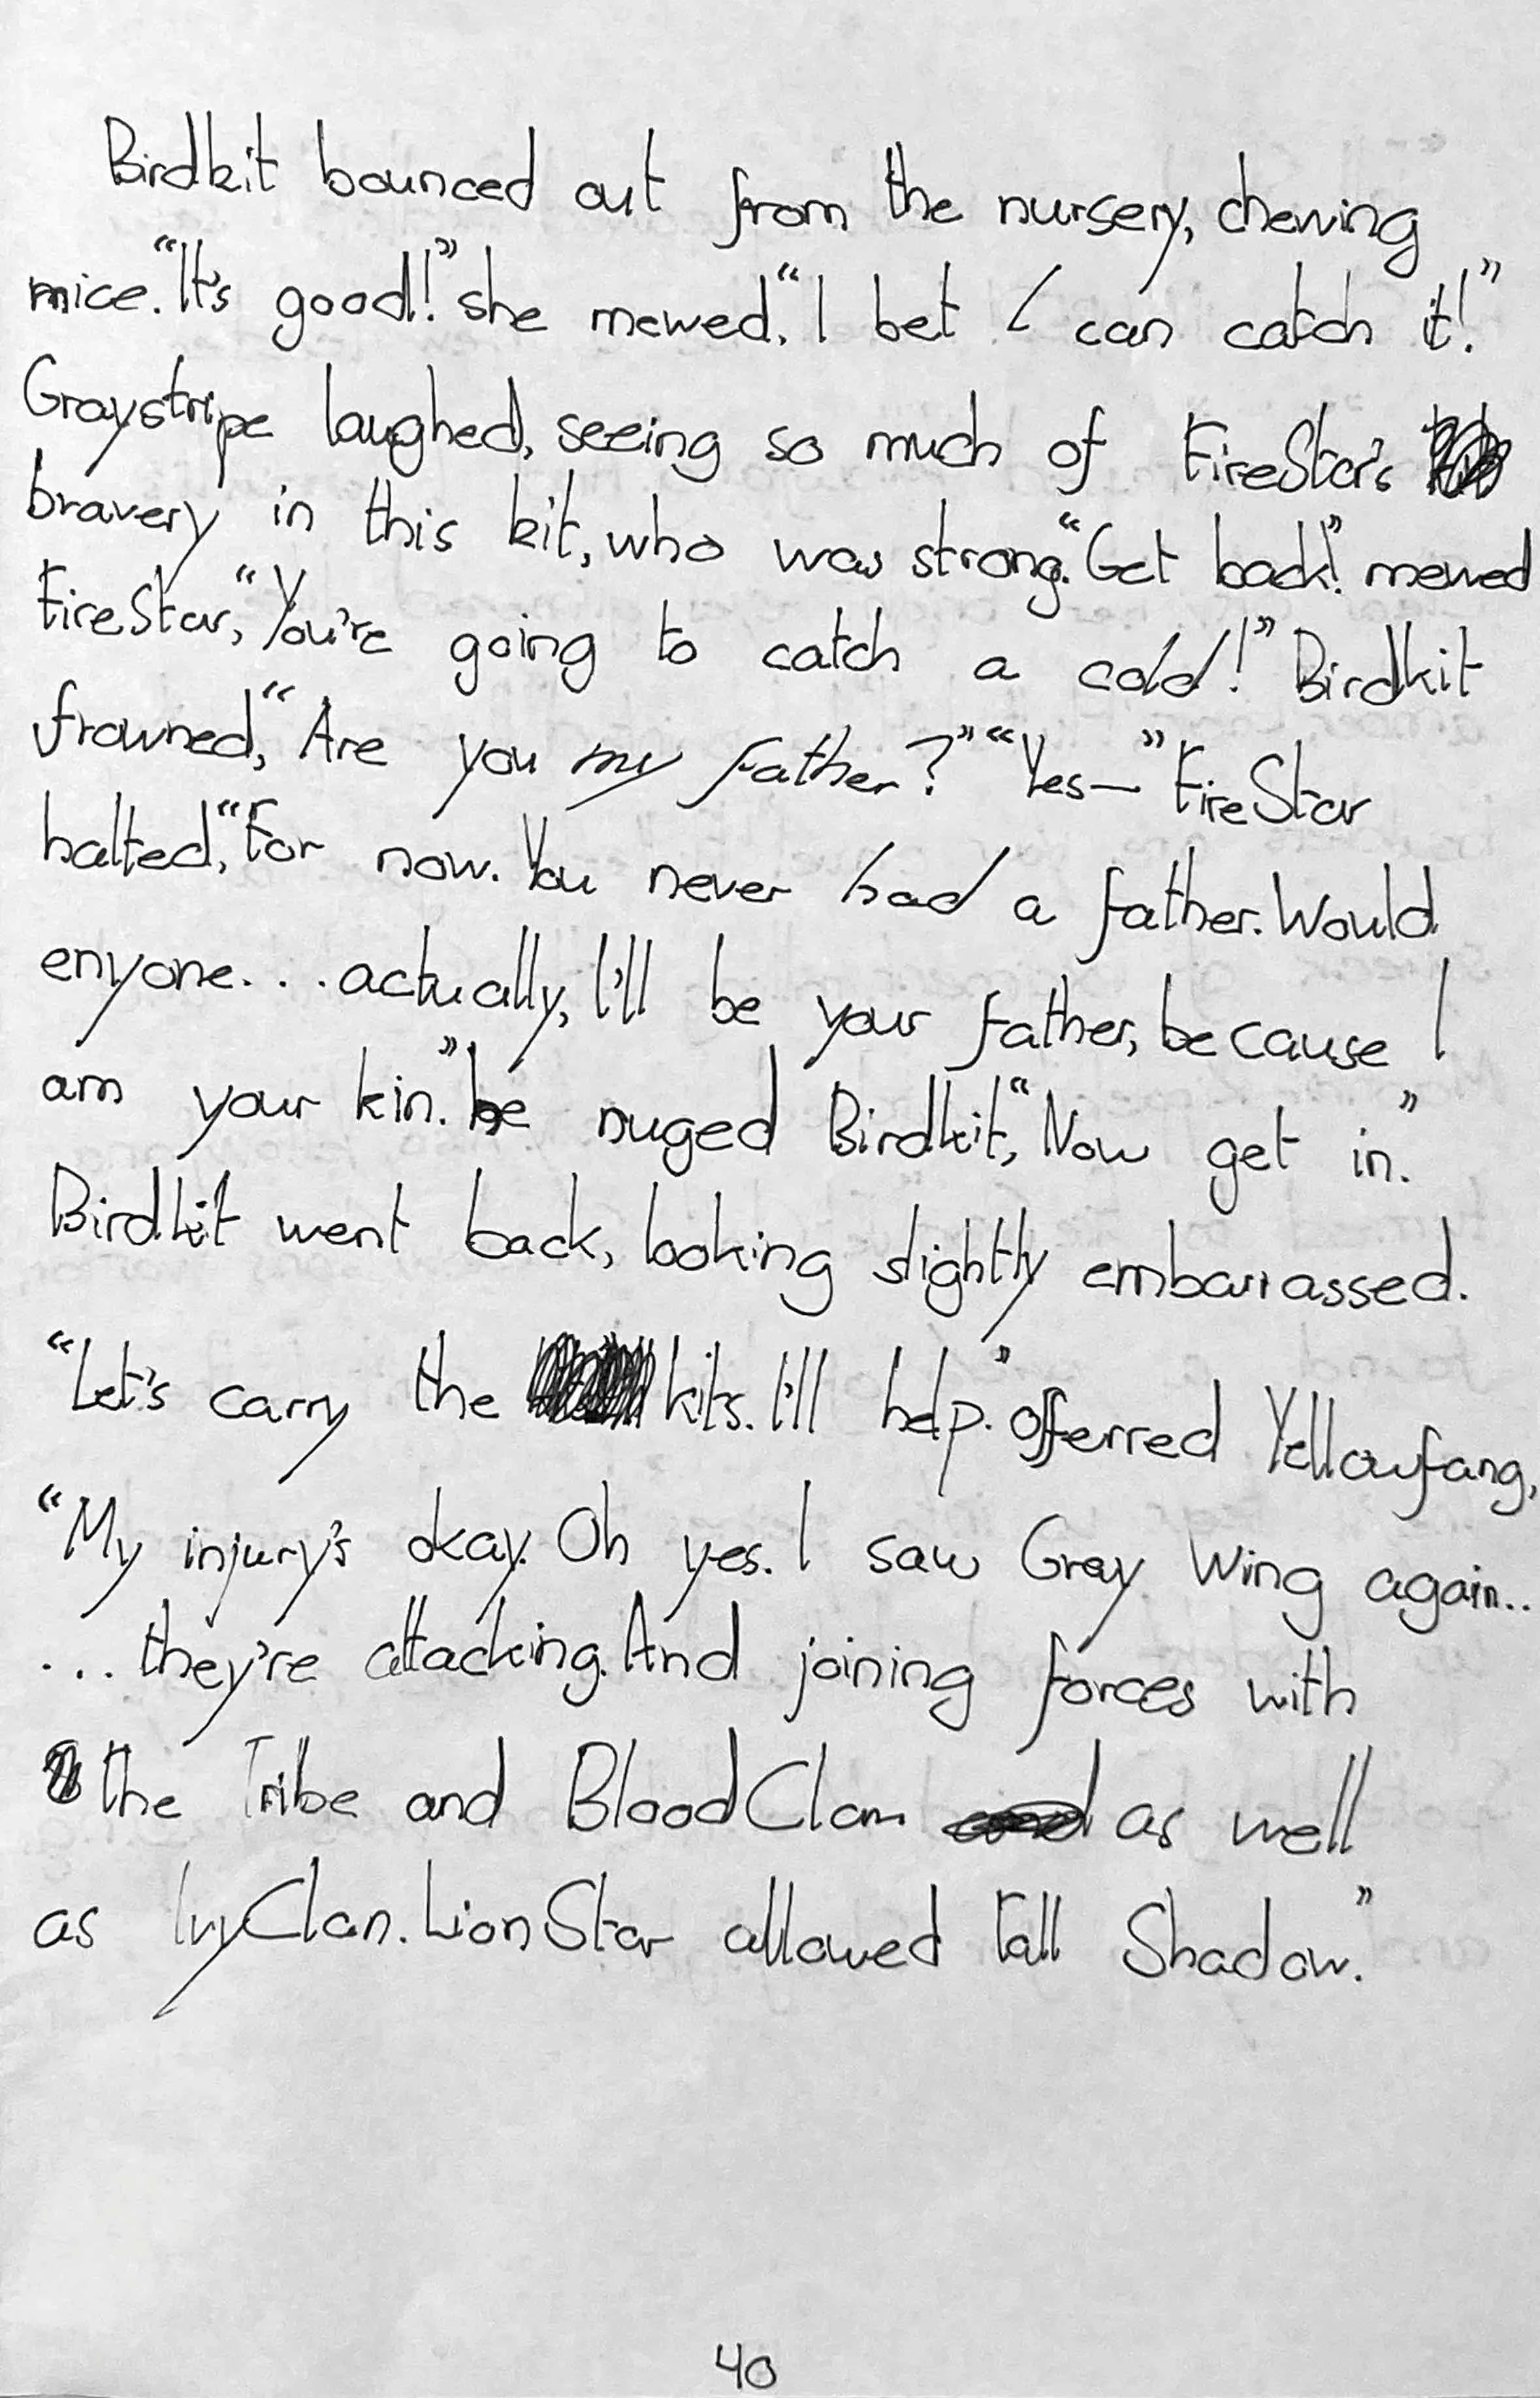 Birdkit bounced out from the nursery, chewing
mice. "It's good!" she mewed, "I bet I can catch it!"
Graystripe laughed, seeing so much of FireStar's
bravery in this kit, who was strong. "Get back!" mewed
FireStar, "You're going to catch a cold!" Birdkit
frowned, "Are you my father?" "Yes—" FireStar
halted, "For now. You never had a father. Would
enyone... actually, I'll be your father, because I
am your kin." he nuged Birdkit, "Now get in."
Birdkit went back, looking slightly embarrassed.
"Let's carry the kits. I'll help." offerred Yellowfang,
"My injury's okay. Oh yes. I saw Gray Wing again..
... they're attacking. And joining forces with
the Tribe and BloodClan as well
as IvyClan. LionStar allowed Tall Shadow."
40